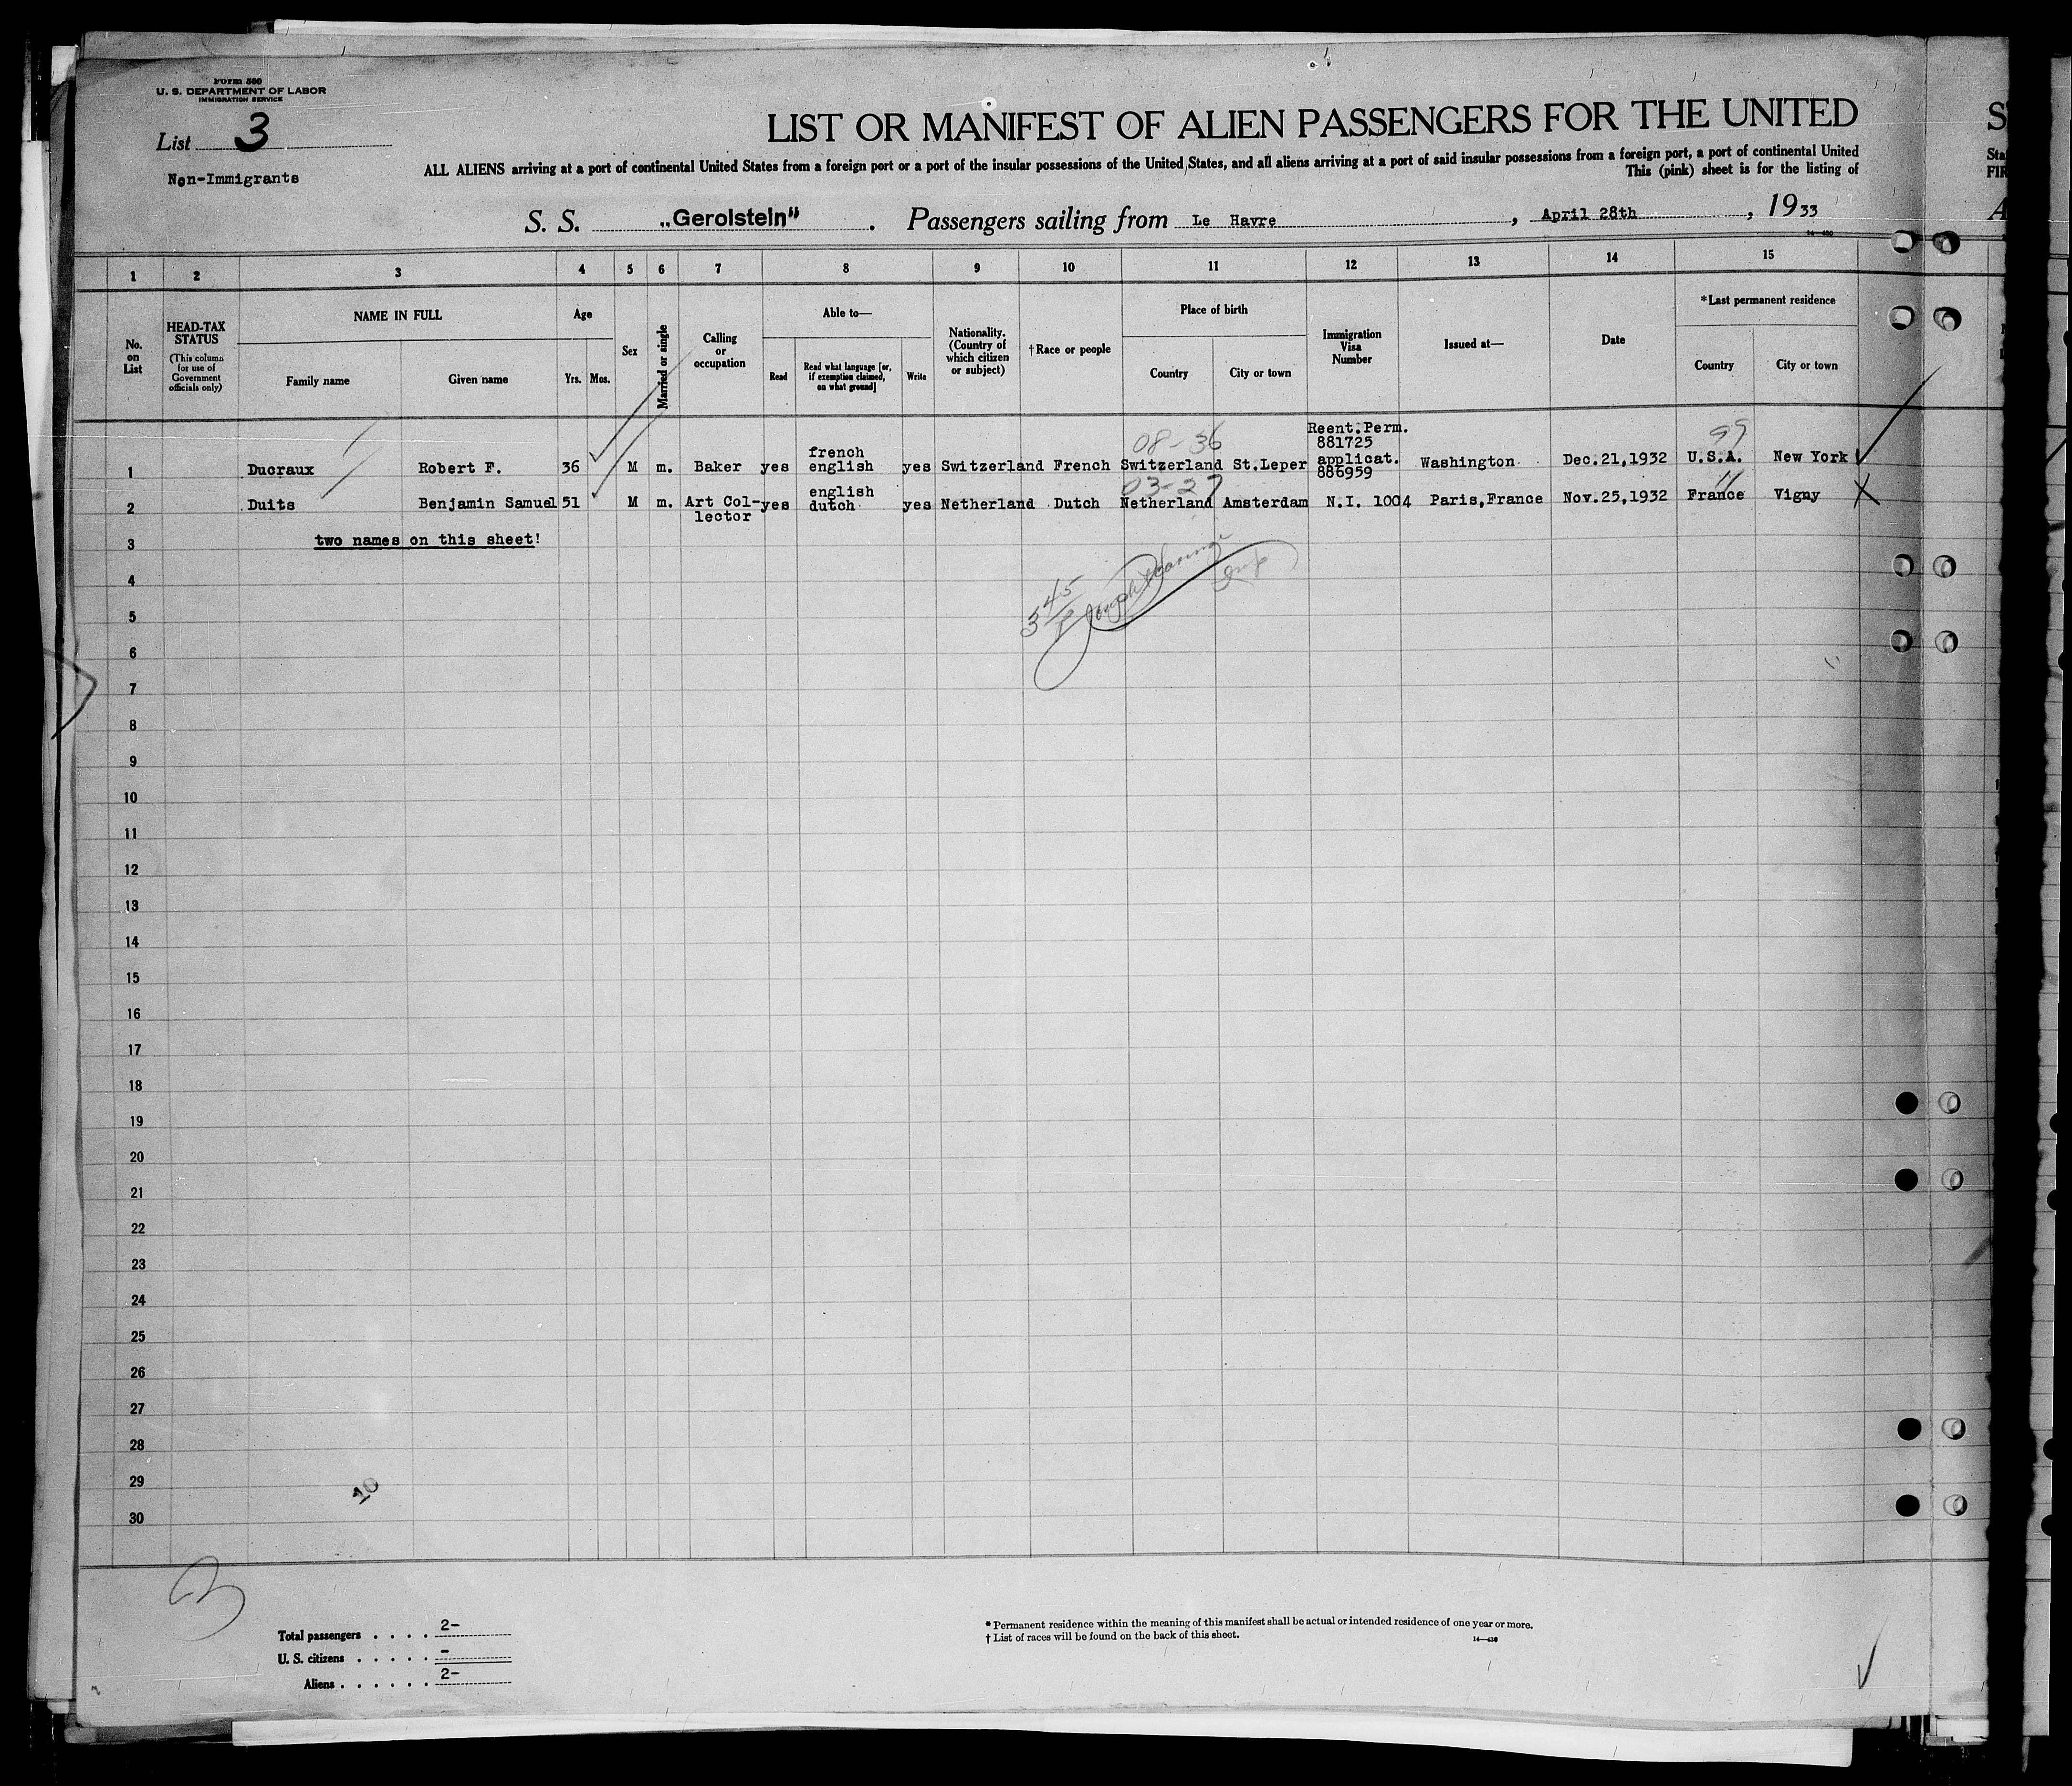 Form 500
U. S. DEPARTMENT OF LABOR
IMMIGRATION SERVICE
List 3
Non-Immigrants
LIST OR MANIFEST OF ALIEN PASSENGERS FOR THE UNITED
ALL ALIENS arriving at a port of continental United States from a foreign port or a port of the insular possessions of the United States, and all aliens arriving at a port of said insular possessions from a foreign port, a port of continental United
This (pink) sheet is for the listing of
S. S. „Gerolstein" . Passengers sailing from Le Havre , April 28th , 1933
1 2 3 4 5 6 7 8 9 10 11 12 13 14 15
No. on List
HEAD-TAX STATUS (This column for use of Government officials only)
NAME IN FULL
Family name
Given name
Age
Yrs. Mos.
Sex
Married or single
Calling or occupation
Able to—
Read
Read what language [or, if exemption claimed, on what ground]
Write
Nationality. (Country of which citizen or subject)
†Race or people
Place of birth
Country
City or town
Immigration Visa Number
Issued at—
Date
*Last permanent residence
Country
City or town
08-36
99
1 Ducraux Robert F. 36 M m. Baker yes french english yes Switzerland French Switzerland St.Leper Reent.Perm. 881725 applicat. 886959 Washington Dec.21,1932 U.S.A. New York
03-27
11
2 Duits Benjamin Samuel 51 M m. Art Col-lector yes english dutch yes Netherland Dutch Netherland Amsterdam N.I. 1004 Paris,France Nov.25,1932 France Vigny X
3 two names on this sheet!
4
5
6
7
8
9
10
11
12
13
14
15
16
17
18
19
20
21
22
23
24
25
26
27
28
29
30
Total passengers . . . . 2-
U. S. citizens . . . . . -
Aliens . . . . . . 2-
* Permanent residence within the meaning of this manifest shall be actual or intended residence of one year or more.
† List of races will be found on the back of this sheet.